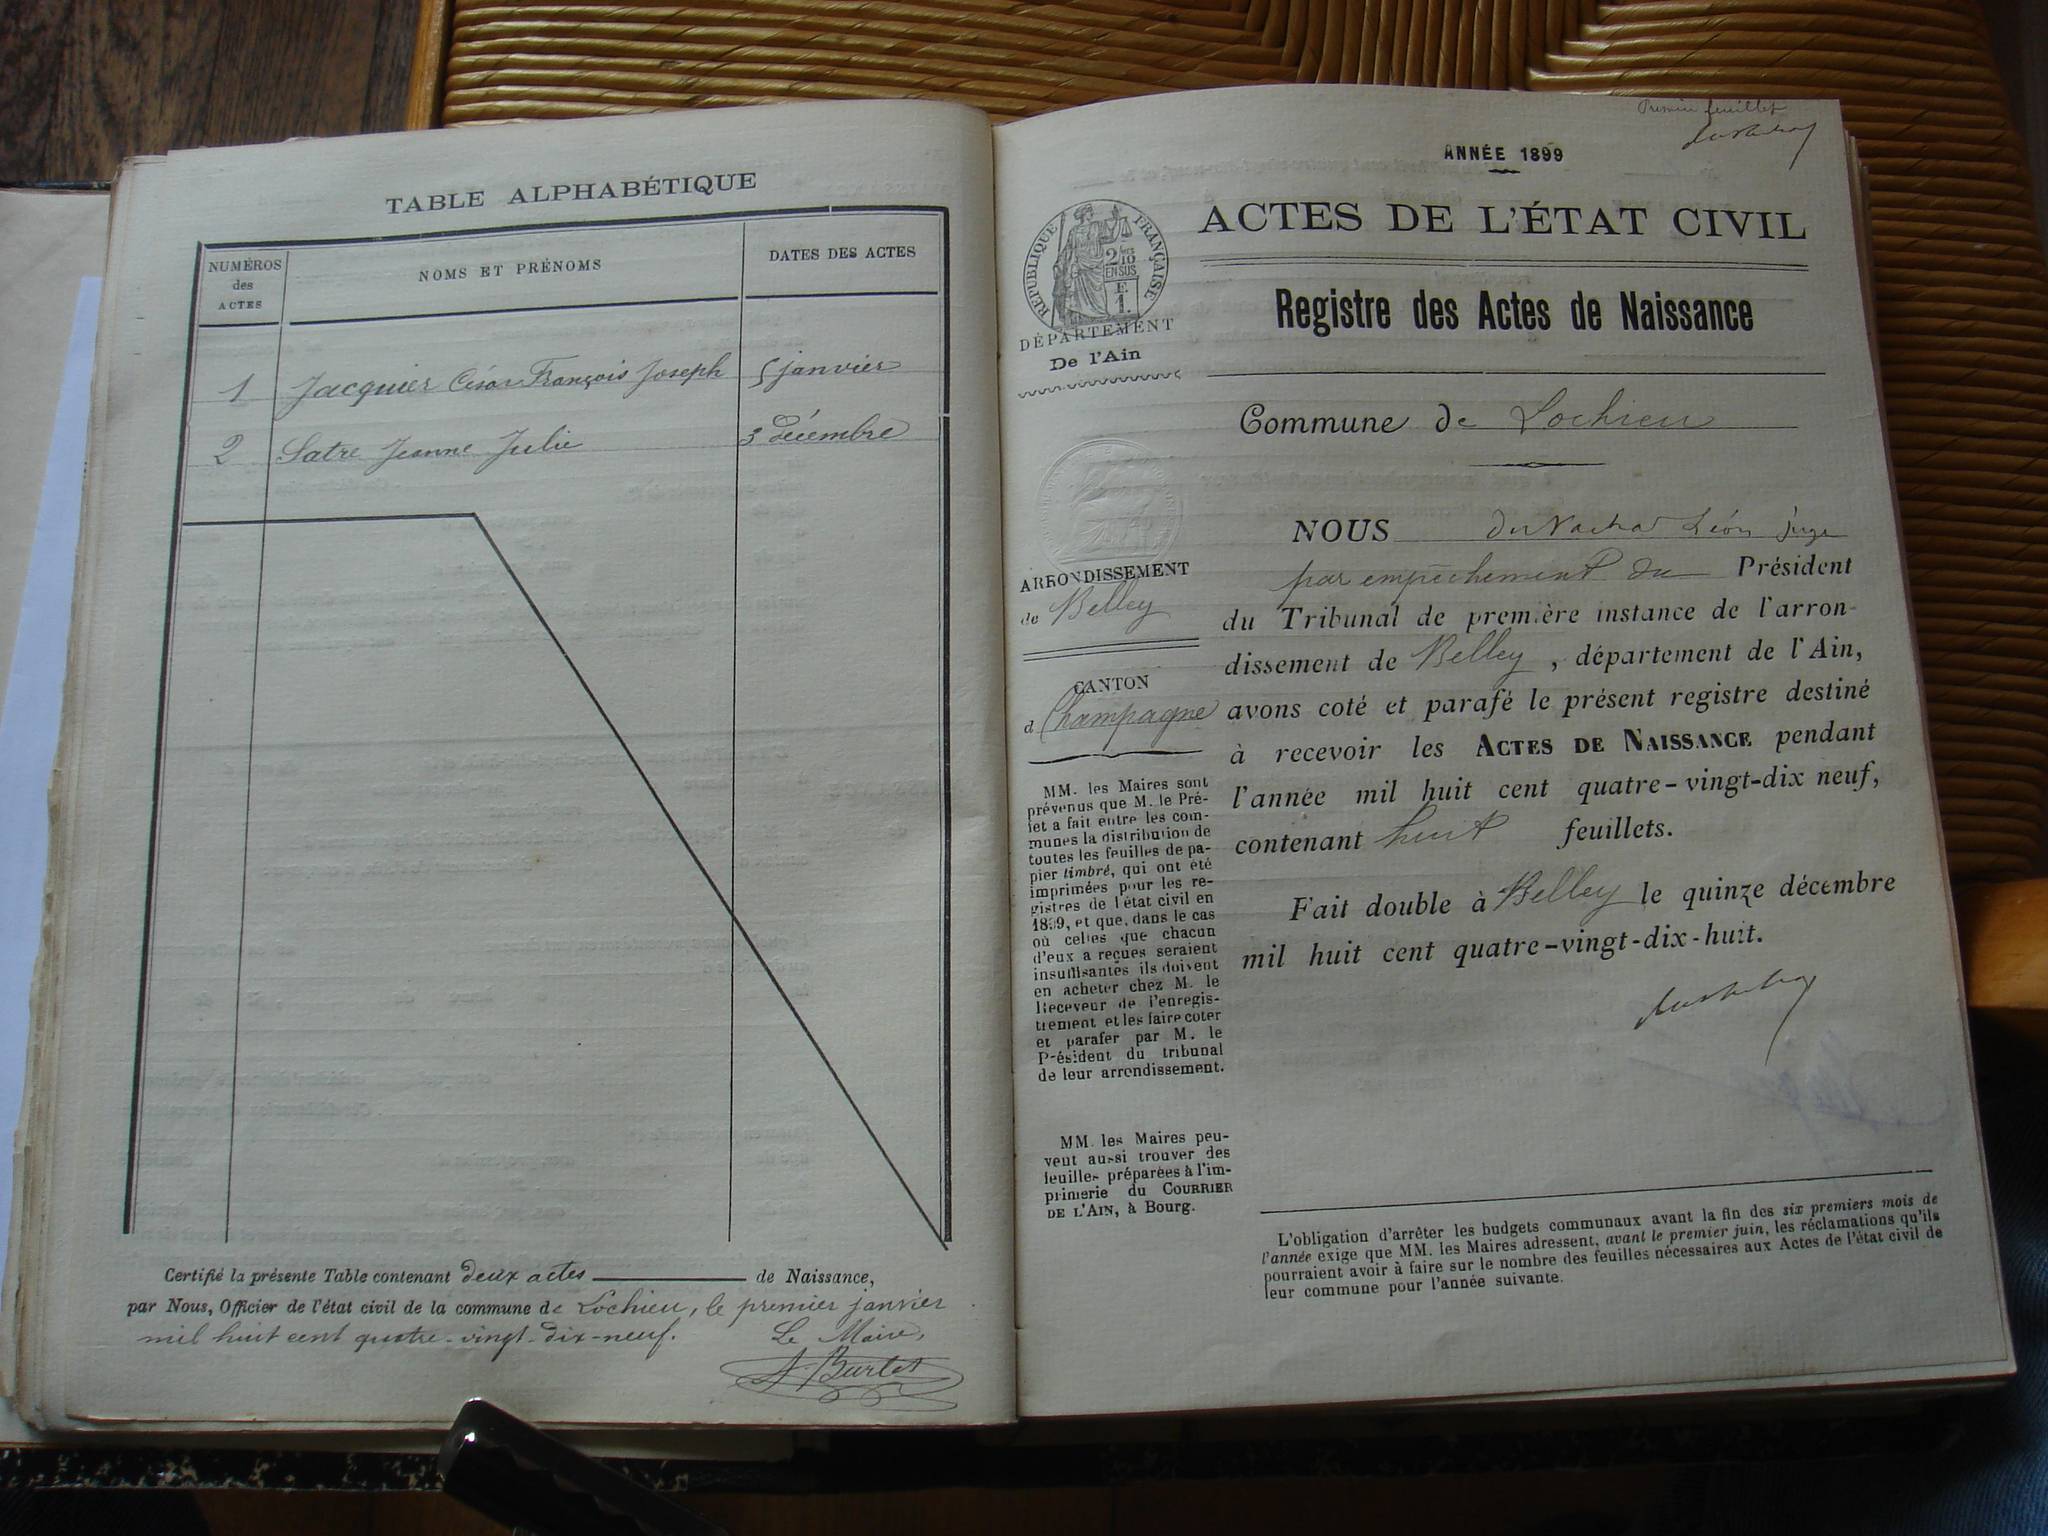 TABLE ALPHABÉTIQUE
NUMÉROS
des
ACTES
NOMS ET PRÉNOMS
DATES DES ACTES
1 Jacquier César François Joseph 5 janvier
2 Satre Jeanne Julie 3 décembre
Certifié la présente Table contenant deux actes de Naissance,
par Nous, Officier de l'état civil de la commune de Lochieu, le premier janvier
mil huit cent quatre-vingt-dix-neuf. Le Maire,
Premier feuillet
ANNÉE 1899
ACTES DE L'ÉTAT CIVIL
RÉPUBLIQUE FRANÇAISE
2/10
EN SUS
F.
1.
DÉPARTEMENT
De l'Ain
Registre des Actes de Naissance
Commune de Lochieu
ARRONDISSEMENT
de Belley
CANTON
d Champagne
MM. les Maires sont
prévenus que M. le Pré-
fet a fait entre les com-
munes la distribution de
toutes les feuilles de pa-
pier timbré, qui ont été
imprimées pour les re-
gistres de l'état civil en
1899, et que, dans le cas
où celles que chacun
d'eux a reçues seraient
insuffisantes ils doivent
en acheter chez M. le
Receveur de l'enregis-
trement et les faire coter
et parafer par M. le
Président du tribunal
de leur arrondissement.
MM. les Maires peu-
vent aussi trouver des
feuilles préparées à l'im-
primerie du COURRIER
DE L'AIN, à Bourg.
NOUS Léon juge
par empêchement du Président
du Tribunal de première instance de l'arron-
dissement de Belley, département de l'Ain,
avons coté et parafé le présent registre destiné
à recevoir les ACTES DE NAISSANCE pendant
l'année mil huit cent quatre-vingt-dix neuf,
contenant huit feuillets.
Fait double à Belley le quinze décembre
mil huit cent quatre-vingt-dix-huit.
L'obligation d'arrêter les budgets communaux avant la fin des six premiers mois de
l'année exige que MM. les Maires adressent, avant le premier juin, les réclamations qu'ils
pourraient avoir à faire sur le nombre des feuilles nécessaires aux Actes de l'état civil de
leur commune pour l'année suivante.